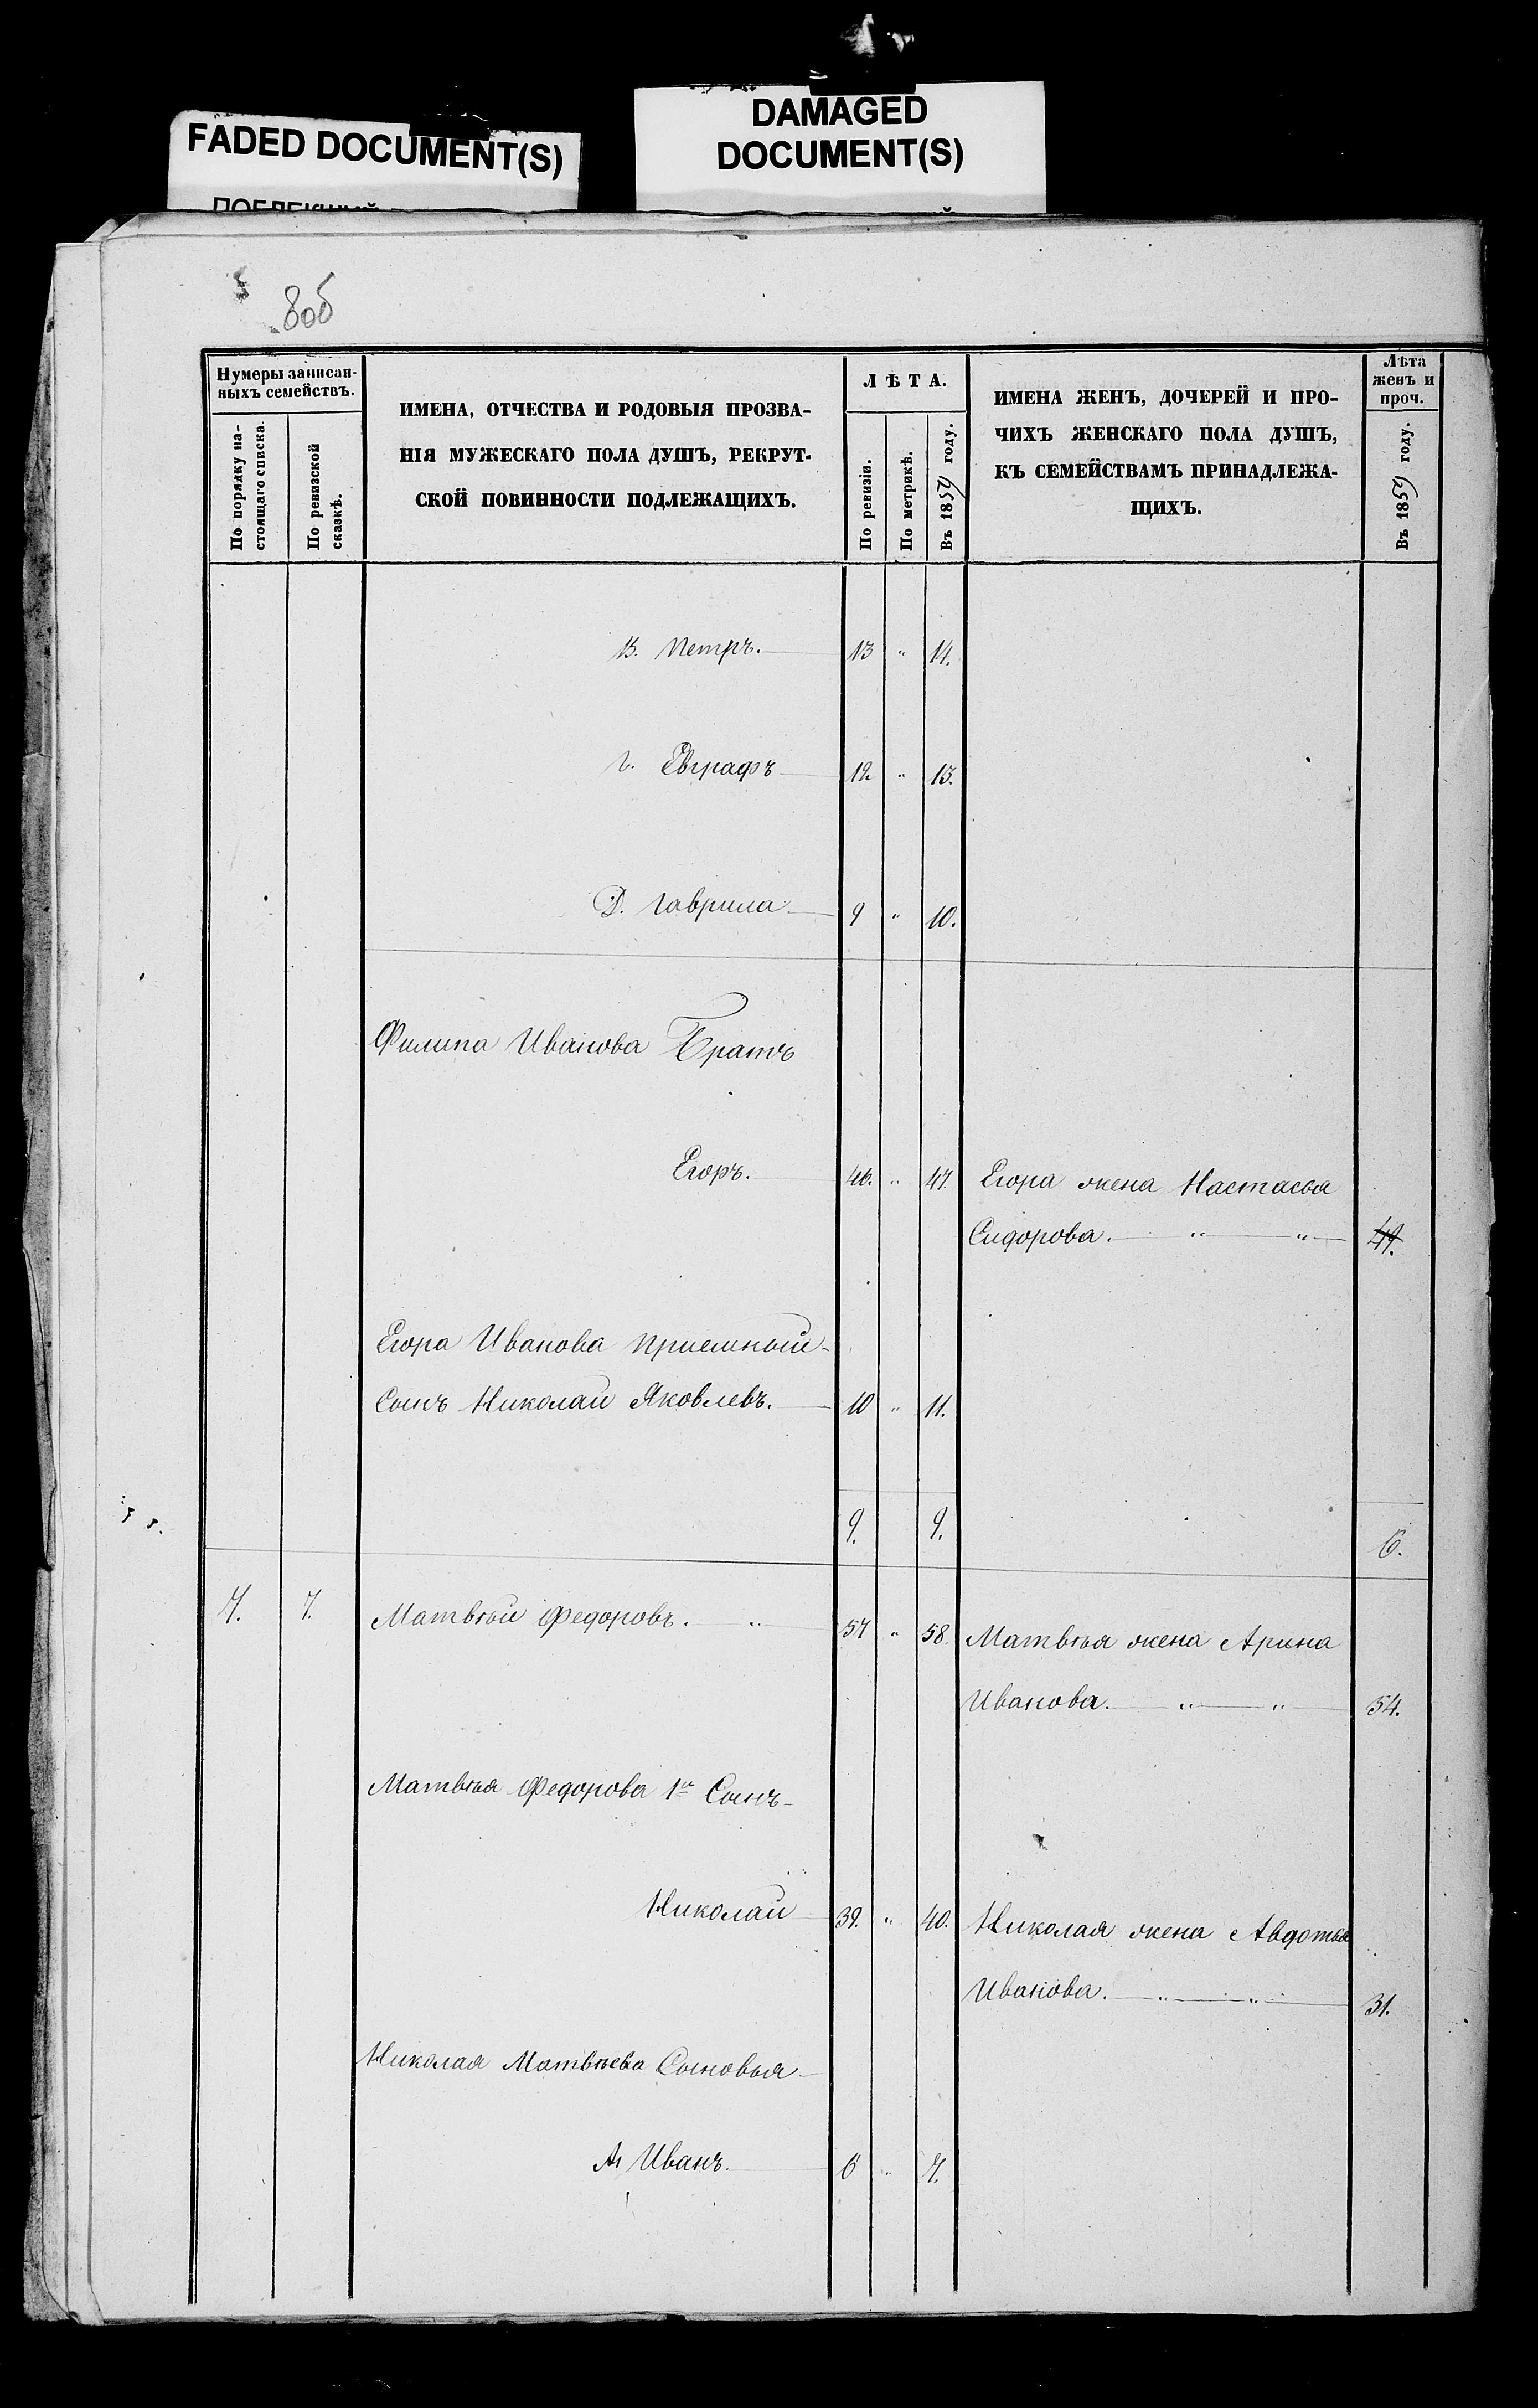 FADED DOCUMENT(S)
DAMAGED
DOCUMENT(S)
8об
Нумеры записан-
ныхъ семействъ.
По порядку на-
стоящаго списка.
По ревизской
сказкѣ.
ИМЕНА, ОТЧЕСТВА И РОДОВЫЯ ПРОЗВА-
НІЯ МУЖЕСКАГО ПОЛА ДУШЪ, РЕКРУТ-
СКОЙ ПОВИННОСТИ ПОДЛЕЖАЩИХЪ.
ЛѢТА.
По ревизіи.
По метрикѣ.
Въ 1859 году.
ИМЕНА ЖЕНЪ, ДОЧЕРЕЙ И ПРО-
ЧИХЪ ЖЕНСКАГО ПОЛА ДУШЪ,
КЪ СЕМЕЙСТВАМЪ ПРИНАДЛЕЖА-
ЩИХЪ.
Лѣта
женъ и
проч.
Въ 1859 году.
В. Петръ. 13 " 14.
г. Евграфъ 12 " 13.
Д. Гаврила 9 " 10.
Филипа Иванова Братъ
Егоръ. 46. " 47. Егора жена Настасья
Сидорова. " "
Егора Иванова приемный
Сынъ Николай Яковлевъ. 10 " 11.
9. 9. 6.
7. 7. Матвѣй Федоровъ. " 57 " 58. Матвѣя жена Арина
Иванова. " " 54.
Матвѣя Федорова 1й Сынъ
Николай 39. " 40. Николая жена Авдотья
Иванова. " " 31.
Николая Матвѣева Сыновья
А. Иванъ. 6 " 7.